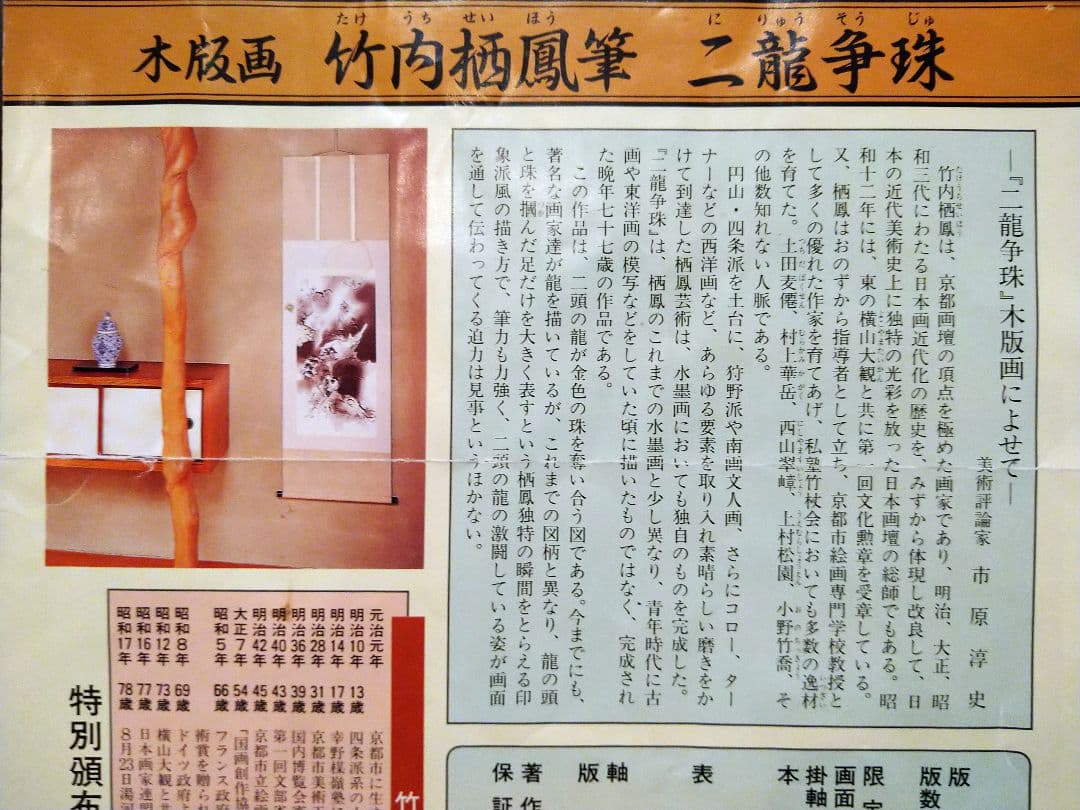 たけうちせいほう にりゅうそうじゅ
木版画 竹内栖鳳筆 二龍争珠
―『二龍争珠』木版画によせて―
美術評論家 市原淳史
竹内栖鳳は、京都画壇の頂点を極めた画家であり、明治、大正、昭
和三代にわたる日本画近代化の歴史を、みずから体現し改良して、日
本の近代美術史上に独特の光彩を放った日本画壇の総師でもある。昭
和十二年には、東の横山大観と共に第一回文化勲章を受章している。
又、栖鳳はおのずから指導者として立ち、京都市絵画専門学校教授と
して多くの優れた作家を育てあげ、私塾竹杖会においても多数の逸材
を育てた。土田麦僊、村上華岳、西山翠嶂、上村松園、小野竹喬、そ
の他数知れない人脈である。
円山・四条派を土台に、狩野派や南画文人画、さらにコロー、ター
ナーなどの西洋画など、あらゆる要素を取り入れ素晴らしい磨きをか
けて到達した栖鳳芸術は、水墨画においても独自のものを完成した。
『二龍争珠』は、栖鳳のこれまでの水墨画と少し異なり、青年時代に古
画や東洋画の模写などをしていた頃に描いたものではなく、完成され
た晩年七十七歳の作品である。
この作品は、二頭の龍が金色の珠を奪い合う図である。今までにも、
著名な画家達が龍を描いているが、これまでの図柄と異なり、龍の頭
と珠を摑んだ足だけを大きく表すという栖鳳独特の瞬間をとらえる印
象派風の描き方で、筆力も力強く、二頭の龍の激闘している姿が画面
を通して伝わってくる迫力は見事というほかない。
竹
元治元年
明治10年 13歳
明治14年 17歳
明治28年 31歳
明治36年 39歳
明治40年 43歳
明治42年 45歳
大正7年 54歳
昭和5年 66歳
昭和8年 69歳
昭和12年 73歳
昭和16年 77歳
昭和17年 78歳
京都市に生
四条派系の
幸野楳嶺塾
京都市美術
国内博覧会
第一回文部
京都市立絵
「国画創作協
フランス政府
術賞を贈られ
ドイツ政府よ
横山大観と共
日本画家連盟
8月23日湯河
特別頒布
版
版数
限定
画面
掛軸
本
表
軸
版
著作
保証